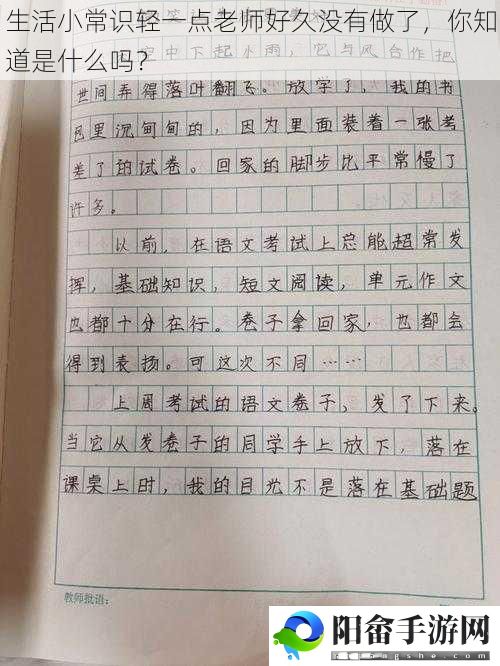 生活小常识轻一点老师好久没有做了，你知
道是什么吗？
空中下起小雨，它与风合作把
世间弄得落叶翻飞。放学了，我的书
包里沉甸甸的，因为里面装着一张考
差了的试卷。回家的脚步比平常慢了
许多。
以前，在语文考试上总能超常发
挥，基础知识，短文阅读，单元作文
也都十分在行。卷子拿回家，也都会
得到表扬。可这次不同……
上周考试的语文卷子，发了下来。
当它从发卷子的同学手上放下，落在
课桌上时，我的目光不是落在基础题
教师批语：
阳畲手游网